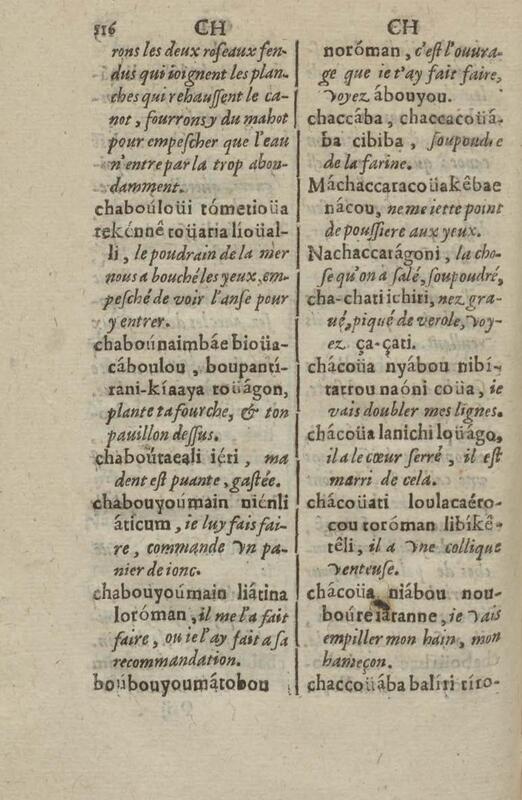 116 CH CH
rons les deux roseaux fen-
dus qui ioignent les plan-
ches qui rehaussent le ca-
not, fourrons y du mahot
pour empescher que l'eau
n'entre par la trop abon-
damment.
chaboúloüi tómetioüa
tekénnê toüaria lioüal-
li, le poudrain de la mer
nous a bouché les yeux, em-
pesché de voir l'anse pour
y entrer.
chaboúnaimbáe bioüa-
cáboulou, boupantí-
rani-kíaaya toüágon,
plante ta fourche, & ton
pauillon dessus.
chaboútaeali iéti, ma
dent est puante, gastée.
chabouyoúmain niénli
áticum, ie luy fais fai-
re, commande vn pa-
nier de ionc.
chabouyoúmain liátina
lotóman, il me l'a fait
faire, ou ie l'ay fait a sa
recommandation.
boúbouyoumátobou
notóman, c'est l'ouura-
ge que ie t'ay fait faire,
voyez ábouyou.
chaccába, chaccacoüá-
ba cibiba, soupoudre
de la farine.
Máchaccaracoüakêbae
nácou, ne me iette point
de poussiere aux yeux.
Nachaccatágoni, la cho-
se qu'on a salé, soupoudré,
cha-chati ichiri, nez gra-
ué, piqué de verole, voy-
ez ça-çati.
chácoüa nyábou nibí-
tattou naóni coüa, ie
vais doubler mes lignes.
chácoüa lanichi loüágo,
il a le cœur serré, il est
marri de cela.
chácoüati loulacaéto-
cou totóman libikê-
têli, il a vne collique
venteuse.
chácoüa niábou nou-
boúre iáranne, ie vais
empiller mon hain, mon
hameçon.
chaccoüába balíri tíro-